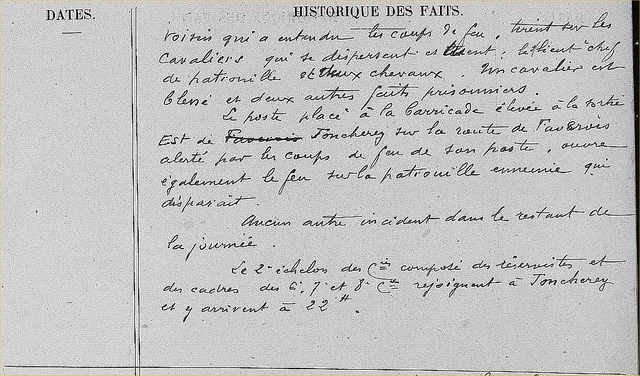 DATES.
HISTORIQUE DES FAITS.
voisin qui a entendu les coups de feu, tirent sur les
cavaliers qui se dispersent et tuent le lieut chef
de patrouille et deux chevaux. Un cavalier est
blessé et deux autres faits prisonniers.
Le poste placé à la barricade élevée à la sortie
Est de Faverois Joncherey sur la route de Faverois
alerté par les coups de feu de son poste, ouvre
également le feu sur la patrouille ennemie qui
disparait.
Aucun autre incident dans le restant de
la journée.
Le 2e échelon des Cies composé des réservistes et
des cadres des 6, 7 et 8 Cie rejoignent à Joncherey
et y arrivent à 22 H.